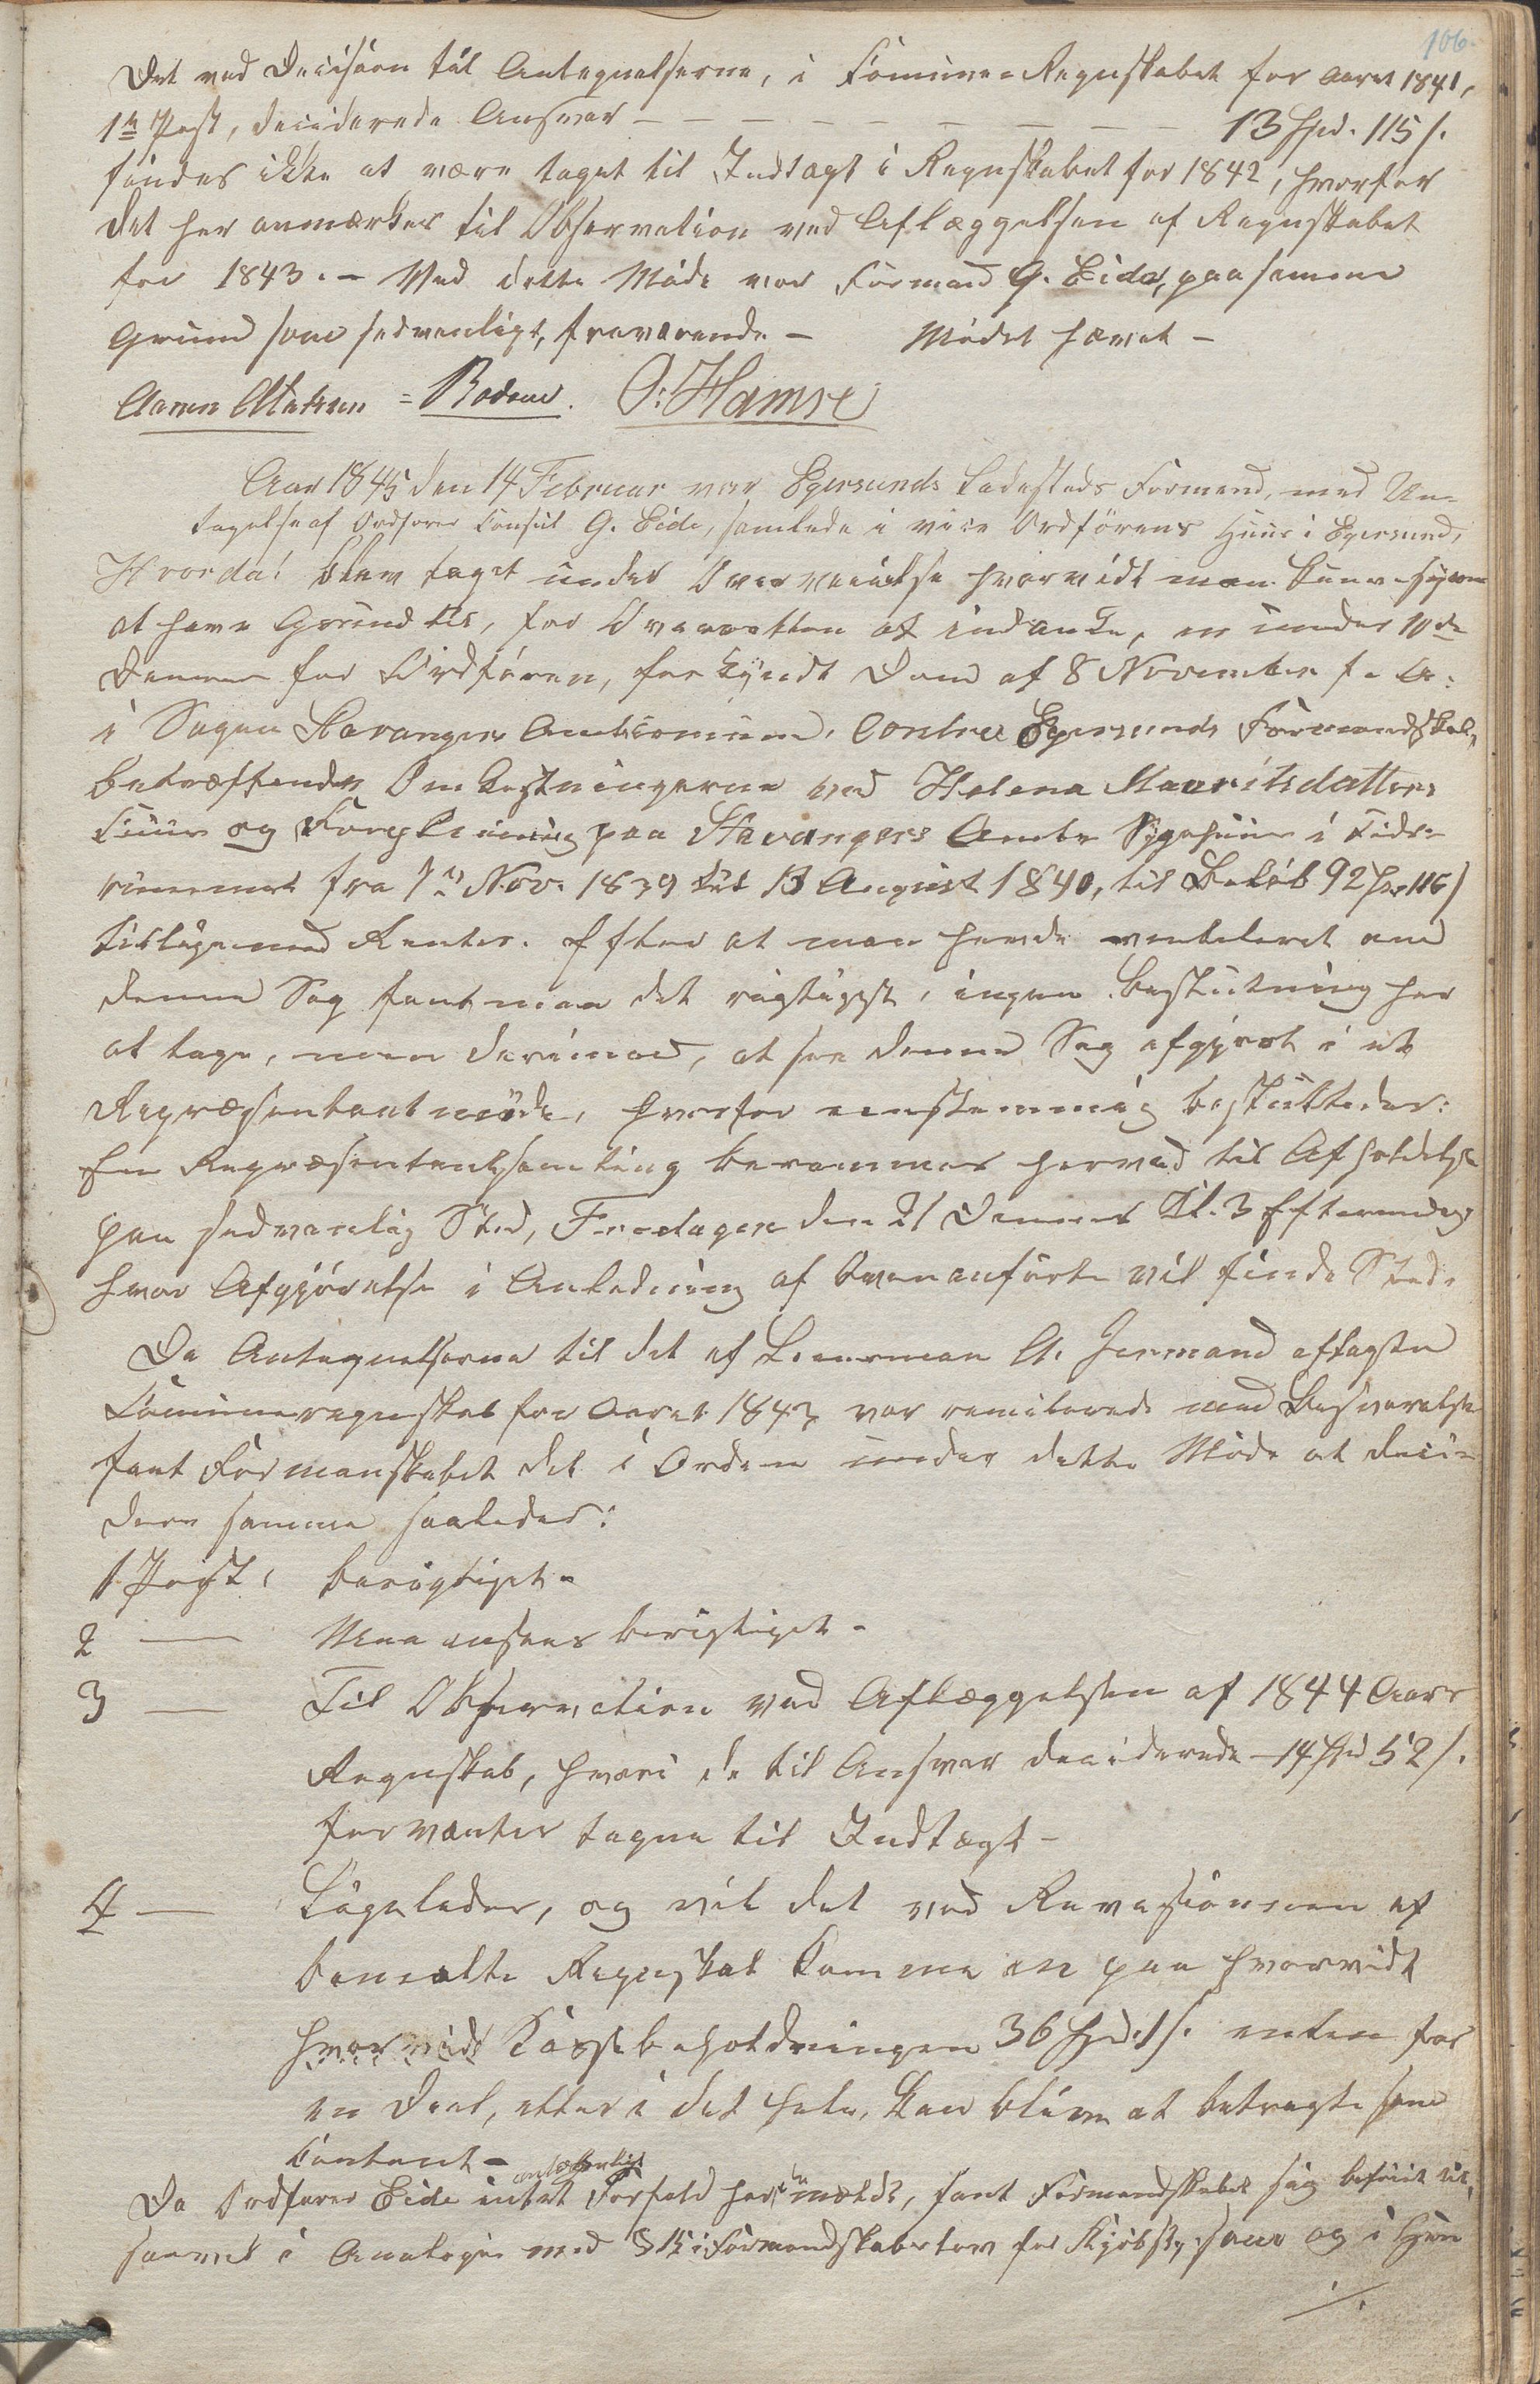 106.
Det ved Decision til Antegnelserne, i Comune-Regnskabet for Aaret 1841,
1ste Post, deciderede Ansvar — — — — — — — — — 13 Spd. 115 s.
findes ikke at være taget til Indtægt i Regnskabet for 1842, hvorfor
det her anmærkes til Observation ved Aflæggelsen af Regnskabet
for 1843. – Ved dette Møde var Formand G. Eide, paa samme
Grund som sedvanligt, fraværende – Mødet hævet –
O: Hamre
Aar 1845 den 14 Februar var Egersunds Ladesteds Formænd, med Und-
tagelse af Ordfører Consul G. Eide, samlede i vice Ordførerens Huus i Egersund,
Hvorda: blev taget under Overveielse hvorvidt man kunne synes
at have Grund til, for Overretten at indanke, en under 10de
dennes for Ordføreren, forkyndt Dom af 8 November f. A:
i Sagen Stavanger Amtscomune, Contra Egersunds Formandskab,
betræffende Omkostningerne ved Helena Mauritsdatters
Cuur og Forpleining paa Stavangers Amts Sygehuus i Tids-
rummet fra 7de Nov. 1839 til 13 August 1840, til Beløb 92 Spd 116 s
tilligemed Renter. Efter at man havde ventileret om
denne Sag fant man det rigtigst, ingen Beslutning her
at tage, men derimod, at see denne Sag afgjort i et
Repræsentantmøde, hvorfor eenstemmig besluttedes:
En Repræsentantsamling berammes herved til Afholdelse
paa sedvanlig Sted, Fredagen den 21 Dennes Kl. 3 Eftermidag
hvor Afgjørelse i Anledning af Ovenanførte vil finde Sted.
Da Antegnelserne til det af Kjæmner A. aflagte
Comuneregnskab for Aaret 1843 var remitterede med Besvarelse
fant Formanskabet det i Orden under dette Møde at deci-
dere samme saaledes:
1 Post, berigtiget –
2 — Maa ansees berigtiget –
3 — Til Observation ved Aflæggelsen af 1844 Aars
Regnskab, hvori de til Ansvar deciderede – 14 Spd 52 s.
forventes tagne til Indtægt –
4 — Ligeledes, og vil det ved Revisionen af
benævnte Regnskab komme an paa hvorvidt
hvorvidt Kassebeholdningen 36 Spd. 1 s. enten for
en Deel, eller i det hele, kan blive at betragte som
Contant –
Da Ordfører Eide intet Forfald har anmeldt, fant Formandskabet sig beføiet til,
saavel i Analogie med § 15 i Formandskabsloven for Kjøbst, som og i Hen
./.